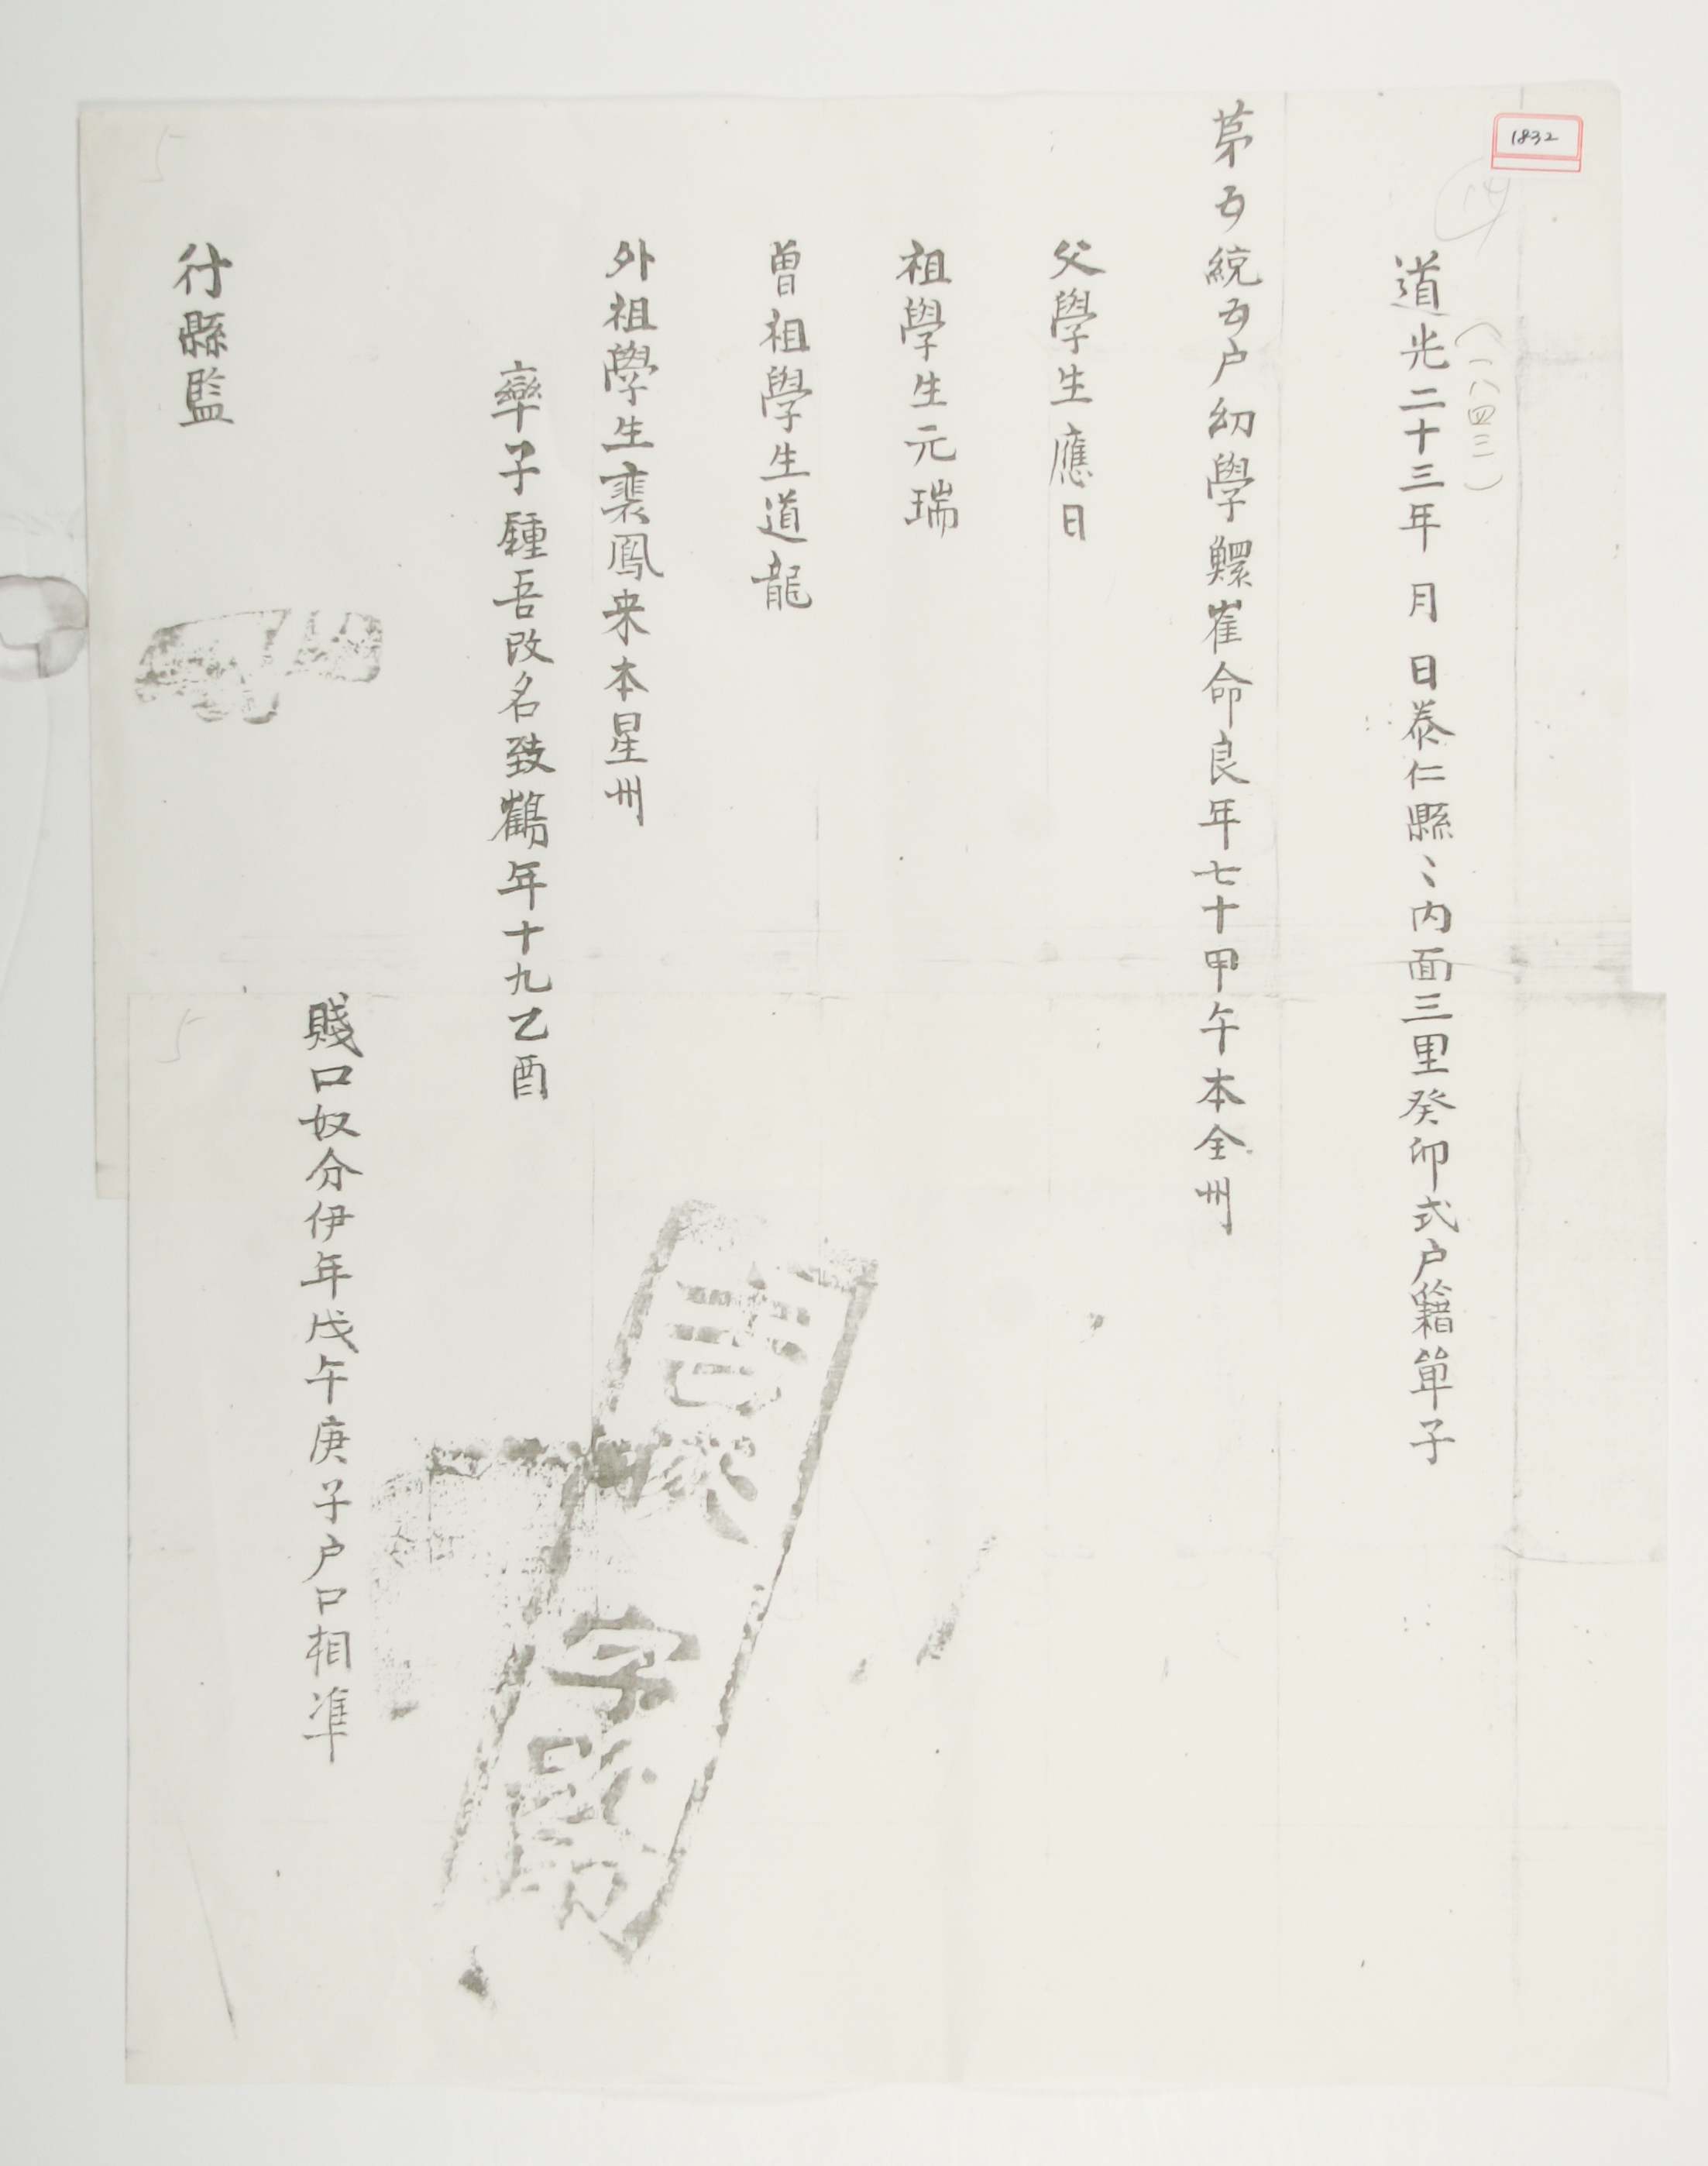 1832
14
道光二十三年 月 日泰仁縣〻内面三里癸卯式户籍單子
(一八四三)
第五統五户幼學鰥崔命良年七十甲午本全州
父學生應日
祖學生元瑞
曽祖學生道龍
外祖學生裵鳳来本星州
率子鍾吾改名致鶴年十九乙酉
賤口奴分伊年戊午庚子户口相準
行縣監
5
5
字改印